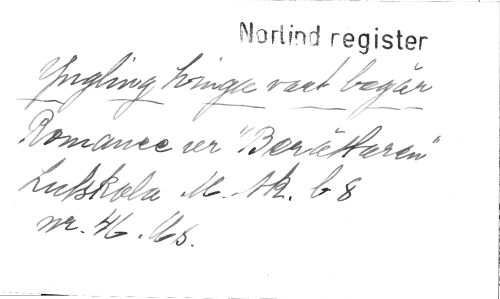 Norlind register
Yngling hvinge vart begär
Romance ur "Berättaren"
Lutskola M. Ak. 68
nr. 46. Ms.